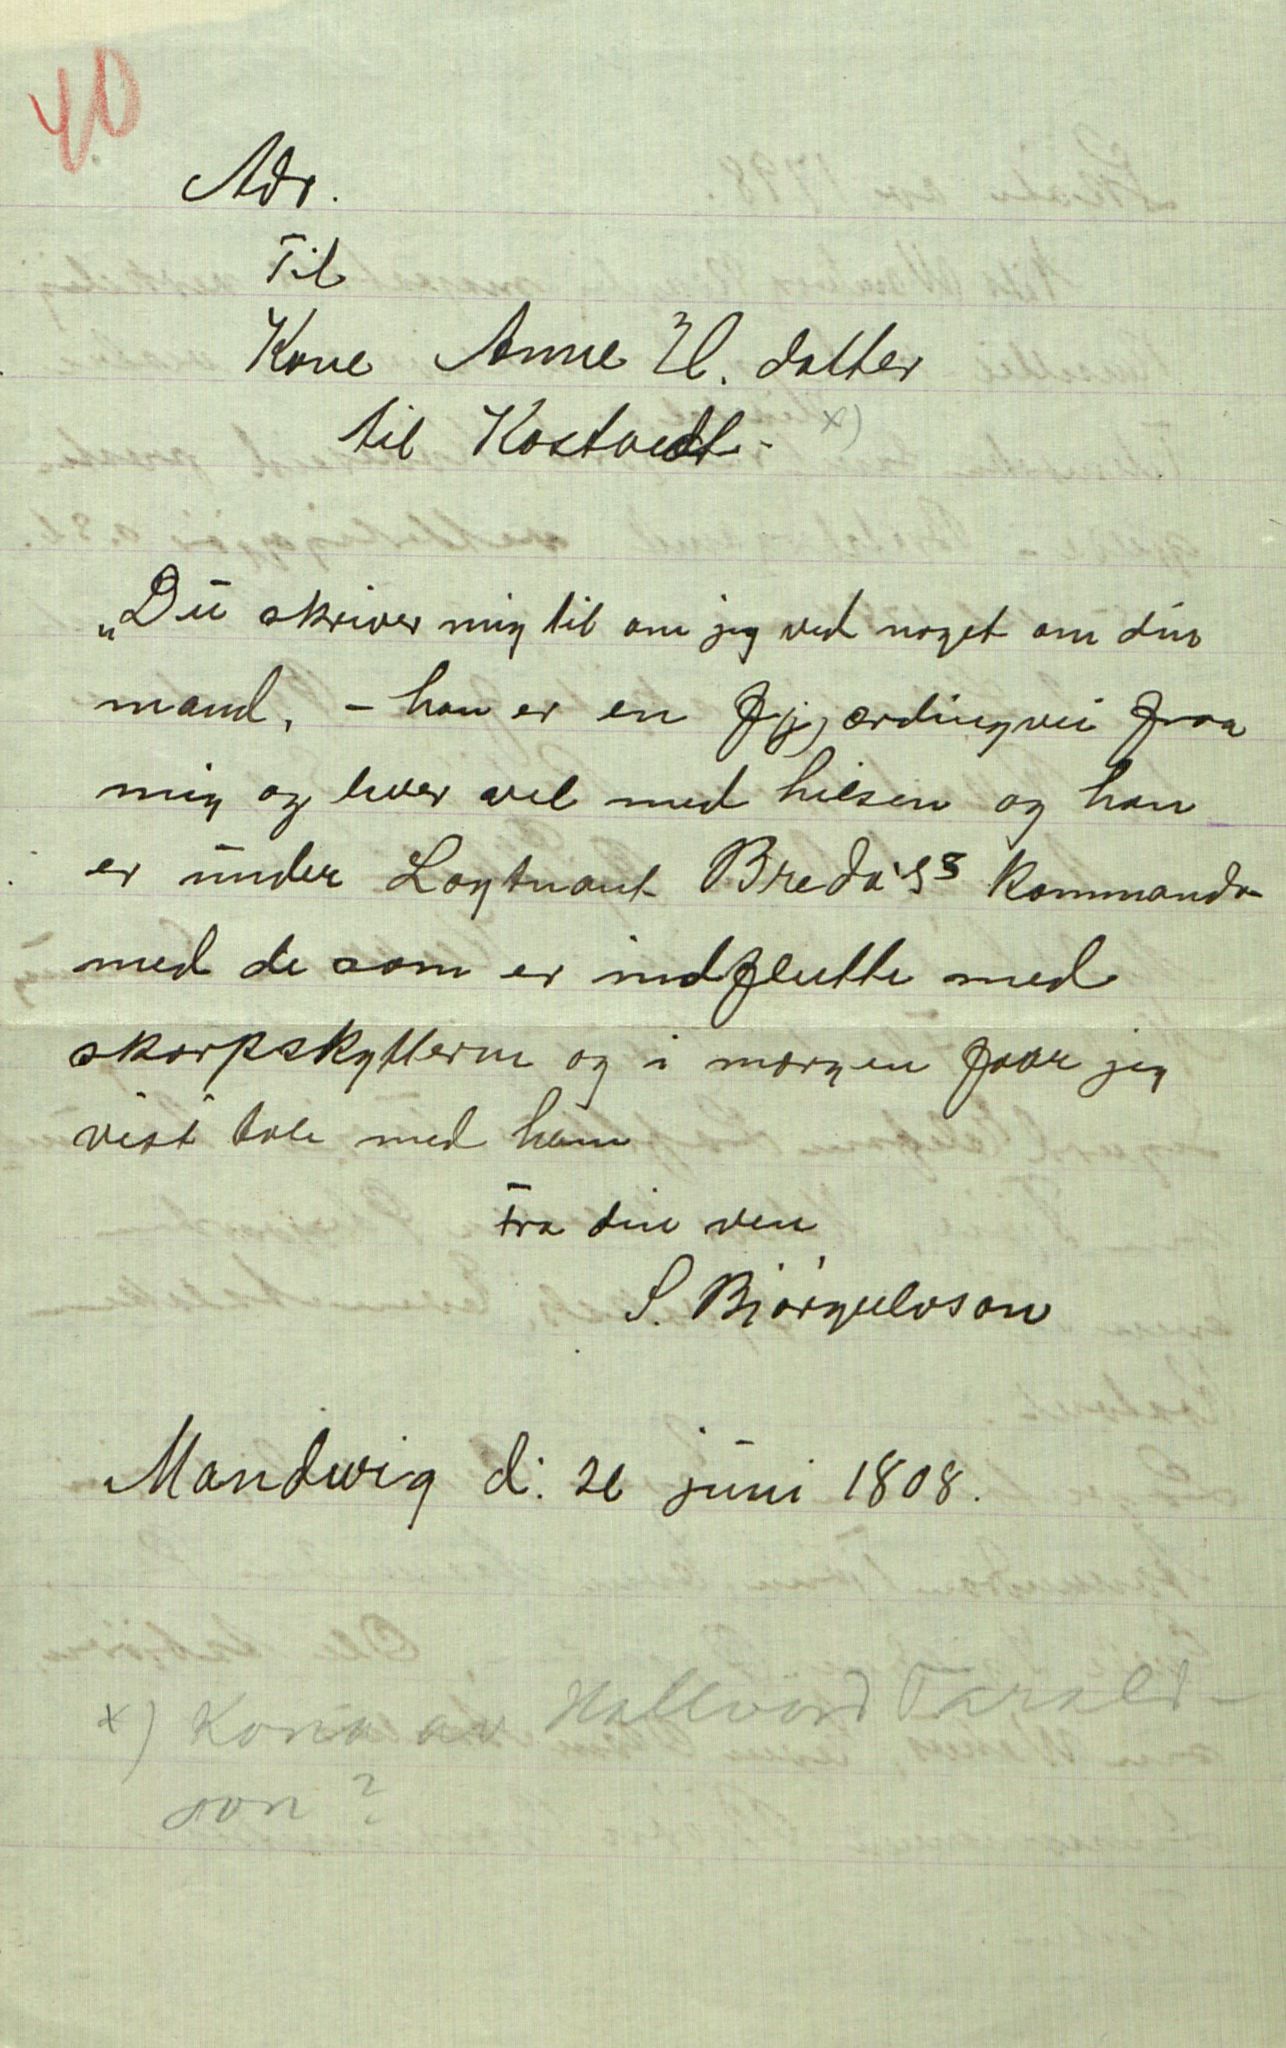 40
Adr.
Til
Kone Anne H. datter
til Kostvedt - x)
„Du skriver mig til om jeg ved noget om din
mand, - han er en fj(j)ærdingvei fraa
mig og lever vel med hilsen og han
er under Løgtnant Breda's Kommando
med de som er indflutte med
skarpskytterne og i morgen faar jeg
vist tale med ham
Fra din ven
S. Bjørgulvson
Mandwig d: 26 juni 1808.
x) Kona av Hallvord Tarald-
son?